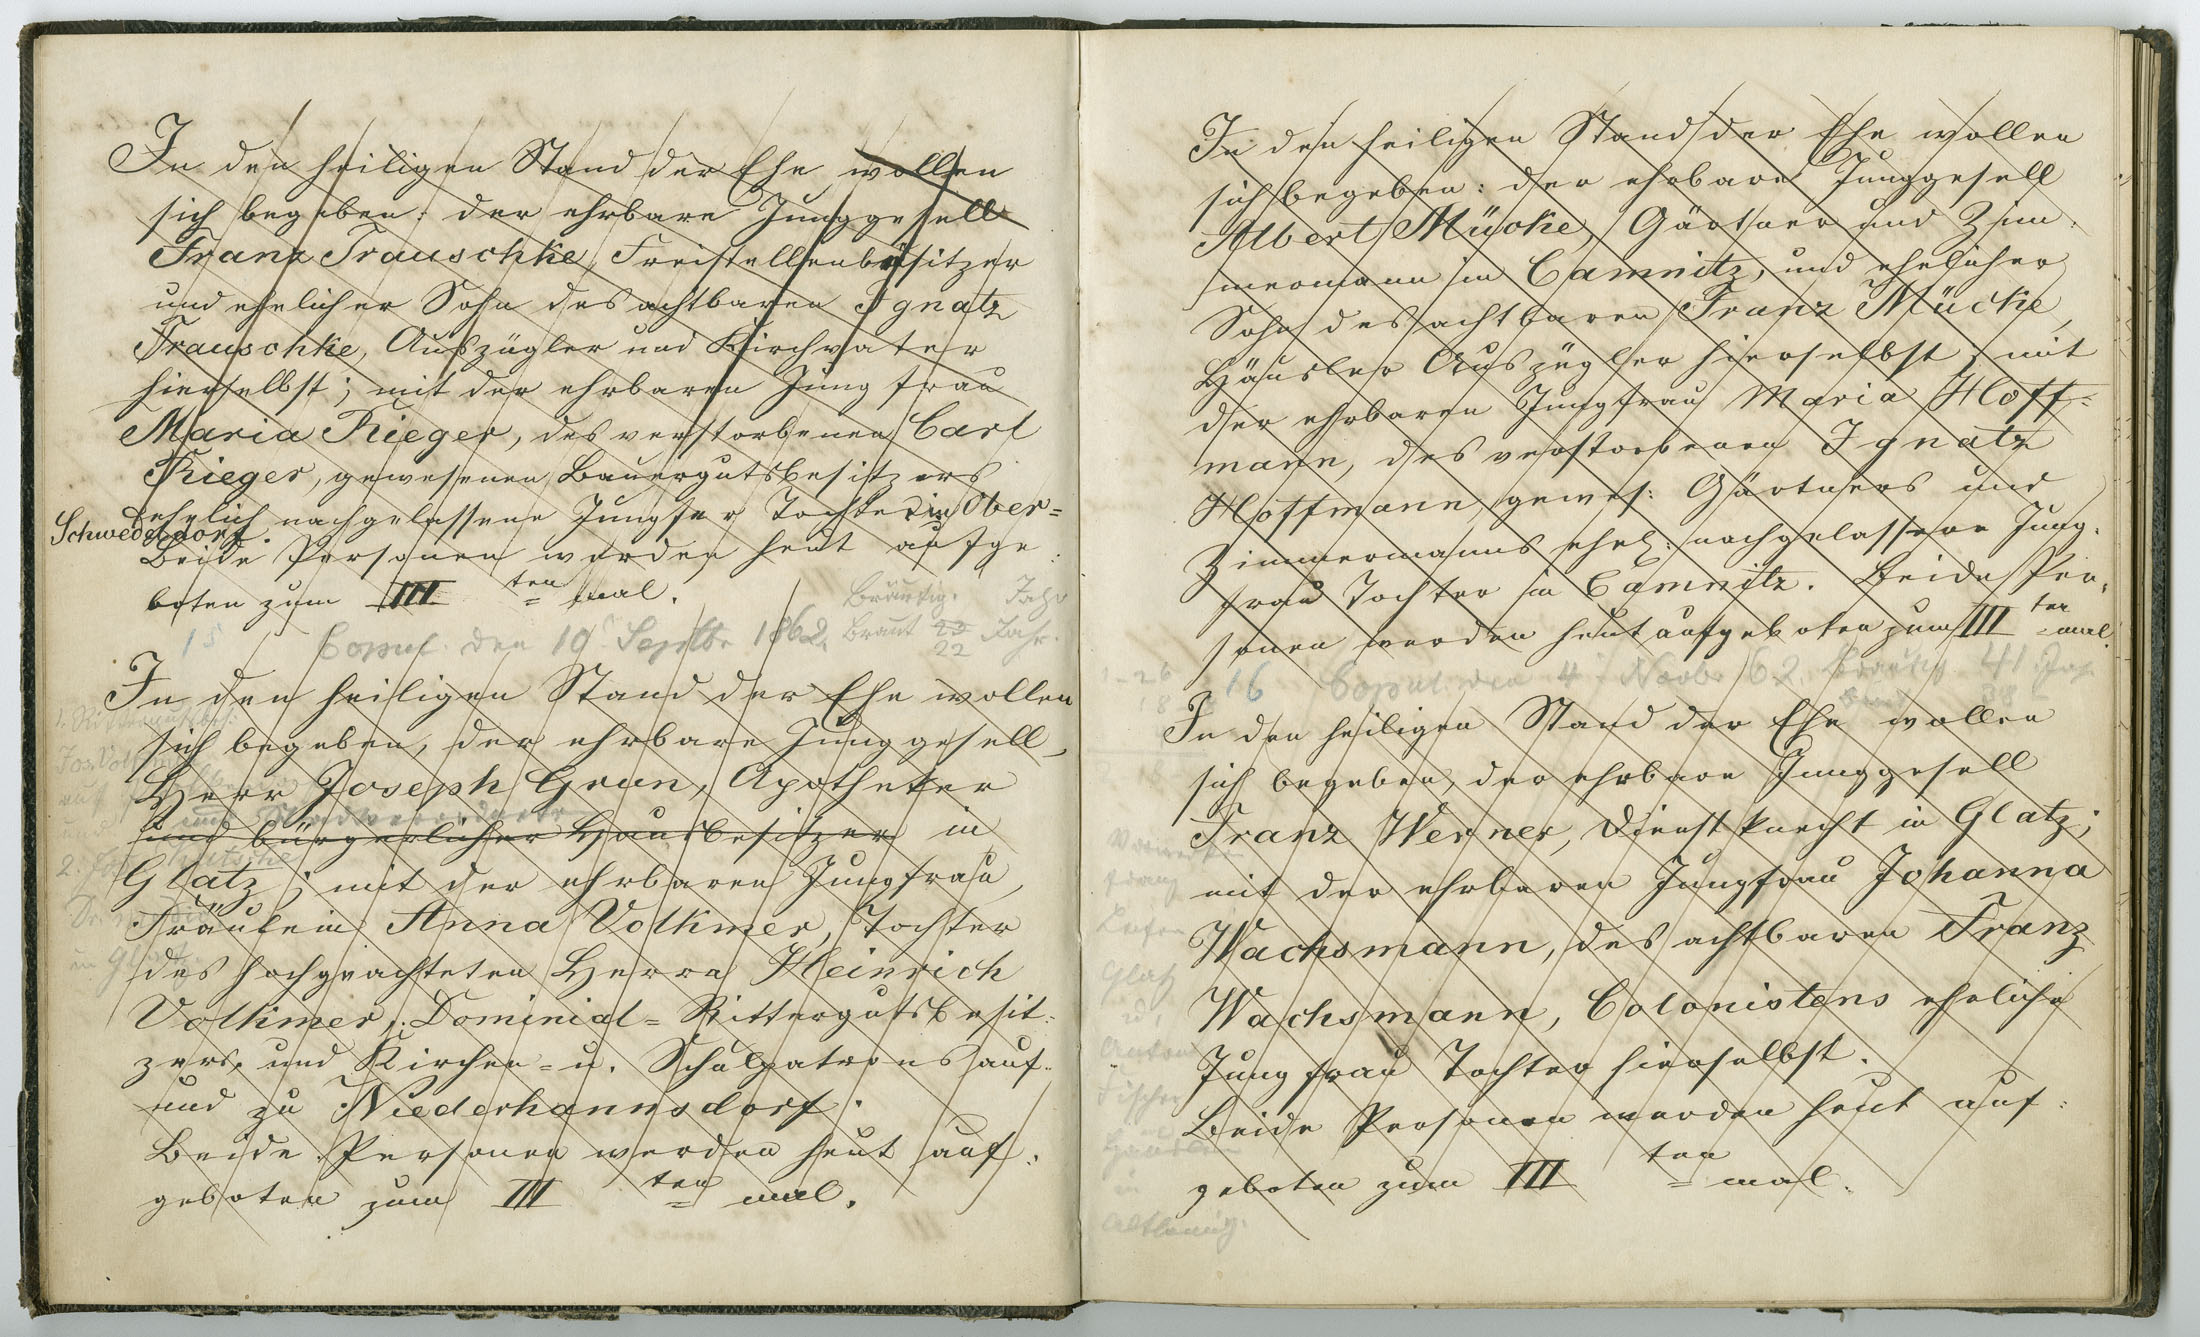 In den heiligen Stand der Ehe wollen
sich begeben: der ehrbare Junggesell
Franz Trauschke, Freistellenbesitzer
und ehelicher Sohn des achtbaren Ignatz
Trauschke, Auszügler und Kirchvater
hierselbst; mit der ehrbaren Jungfrau
Maria Rieger, des verstorbenen Carl
Rieger, gewesenen Bauergutsbesitzers
ehelich nachgelassene Jungfer Tochter in Ober=
Schwedeldorf.
Beide Personen werden heut aufge:
boten zum III ten mal.
Bräutig. Jahr
15 Copul. den 10 Septbr 1862. Braut 23 Jahr.
22
In den heiligen Stand der Ehe wollen
sich begeben, der ehrbare Junggesell,
Herr Joseph Grun, Apotheker
und Stadtverordneter
und bürgerlicher Hausbesitzer in
Glatz; mit der ehrbaren Jungfrau,
Fräulein Anna Volkmer, Tochter
des hochgeachteten Herrn Heinrich
Volkmer, Dominial=Rittergutsbesit:
zers, und Kirchen= u. Schulpatrons auf
und zu Niederhannsdorf.
Beide Personen werden heut auf:
geboten zum III ten mal.
In den heiligen Stand der Ehe wollen
sich begeben: der ehrbare Junggesell
Albert Mücke, Gärtner und Zim:
mermann in Camnitz, und ehelicher
Sohn des achtbaren Franz Mücke,
Häusler Auszügler hierselbst; mit
der ehrbaren Jungfrau Maria Hoff=
mann, des verstorbenen Ignatz
Hoffmann, gewes: Gärtners und
Zimmermanns ehel: nachgelassene Jung:
frau Tochter in Camnitz. Beide Per:
sonen werden heut aufgeboten zum III ten mal.
16 Copul. den 4 Novbr 62. Bräutig. 41 Jahr
In den heiligen Stand der Ehe wollen
sich begeben, der ehrbare Junggesell
Franz Werner, Dienstknecht in Glatz;
mit der ehrbaren Jungfrau Johanna
Wachsmann, des achtbaren Franz
Wachsmann, Colonistens eheliche
Jungfrau Tochter hierselbst.
Beide Personen werden heut auf:
geboten zum III ten mal.
Franz
Glatz
u.
Anton
Fischer